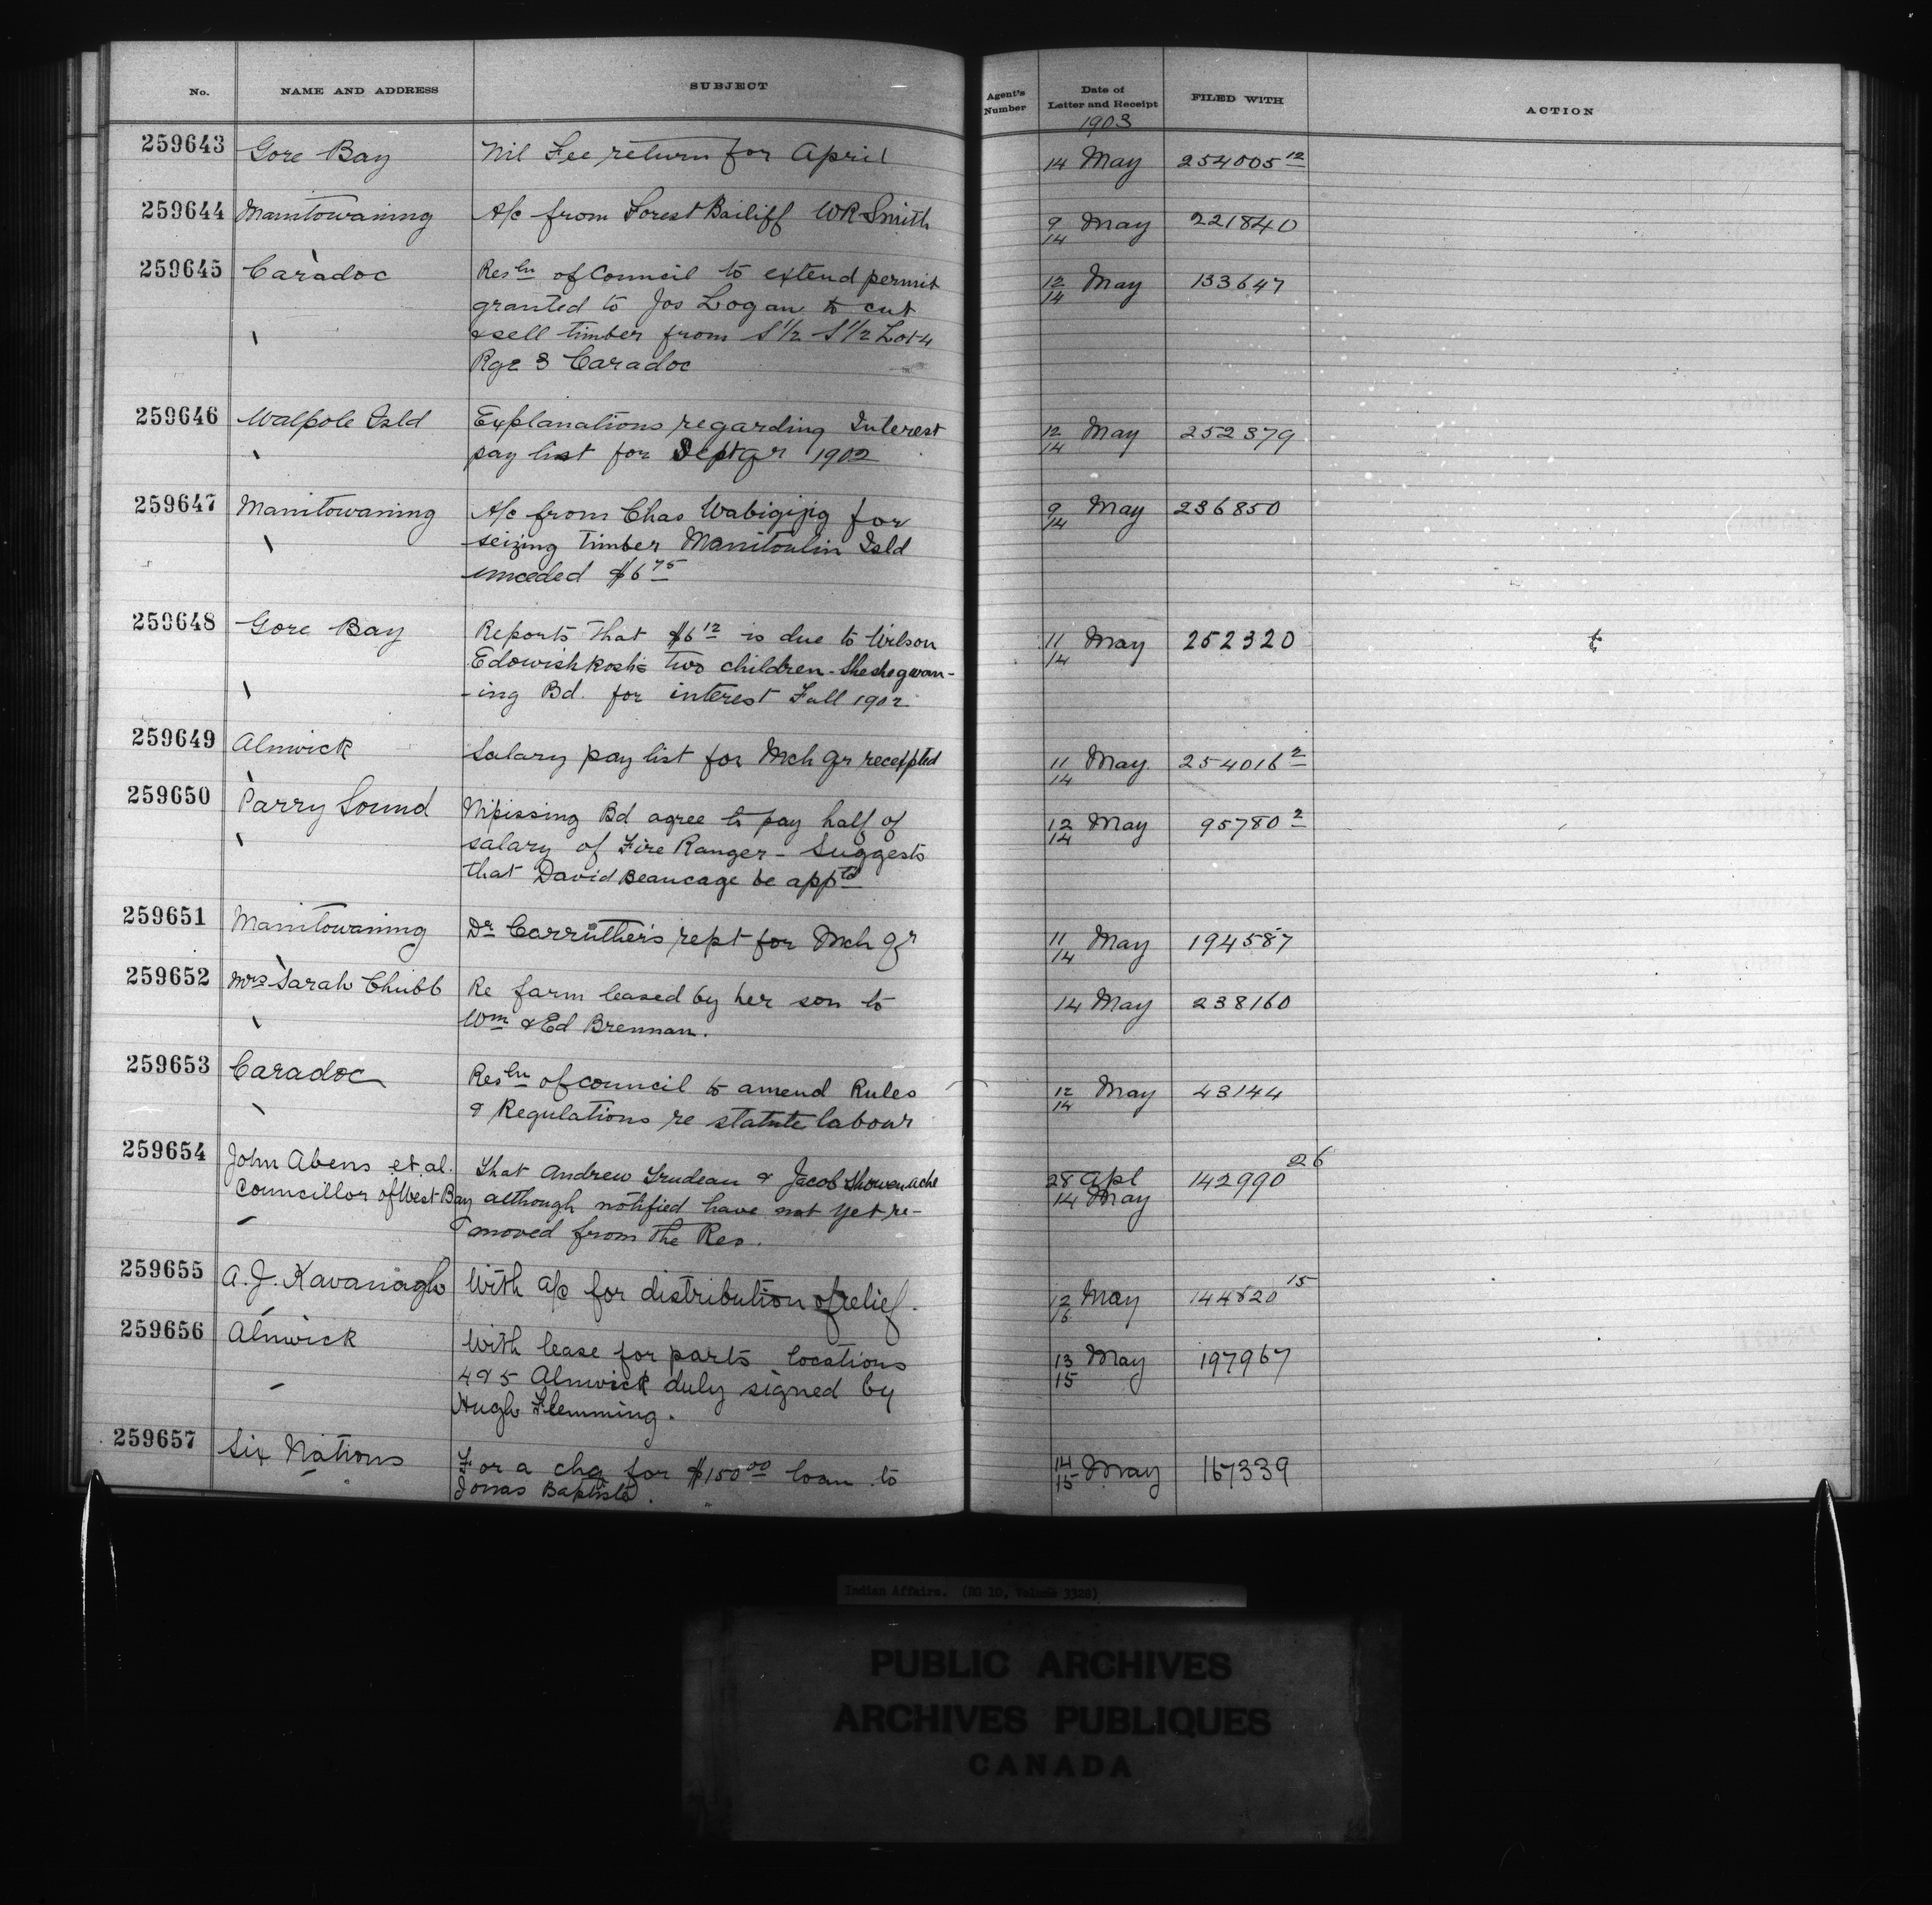 No. NAME AND ADDRESS SUBJECT Agent's Number Date of Letter and Receipt FILED WITH ACTION
1903
259643 Gore Bay Nil Fee return for April 14 May 254005 12
259644 Manitowaning A/c from Forest Bailiff WR Smith 9/14 May 221840
259645 Caradoc Resln of Council to extend permit 12/14 May 133647
granted to Jos Logan to cut
& sell timber from S 1/2 S 1/2 Lot 4
Rge 3 Caradoc
259646 Walpole Isld Explanations regarding Interest 12/14 May 252379
pay list for Sept qr 1902
259647 Manitowaning A/c from Chas Wabigijig for 9/14 May 236850
seizing timber Manitoulin Isld
unceded $6 75
259648 Gore Bay Reports that $6 12 is due to Wilson 11/14 May 252320
Edowishkosh's two children - Sheshegwan-
-ing Bd. for interest Fall 1902
259649 Alnwick Salary pay list for Mch qr receipted 11/14 May 254016 2
259650 Parry Sound Nipissing Bd agree to pay half of 12/14 May 95780 2
salary of Fire Ranger - Suggests
that David Beaucage be apptd
259651 Manitowaning Dr Carruther's rept for Mch qr 11/14 May 194587
259652 Mrs Sarah Chubb Re farm leased by her son to 14 May 238160
Wm & Ed Brennan.
259653 Caradoc Resln of council to amend Rules 12/14 May 43144
& Regulations re statute labour
259654 John Abens et al. That Andrew Trudeau & Jacob Showenache 28 Apl 142990 26
Councillor of West Bay although notified have not yet re- 14 May
moved from the Res.
259655 A. J. Kavanagh With a/c for distribution of relief. 12 May 144820 15
259656 Alnwick With lease for parts locations 13/15 May 197967
4 & 5 Alnwick duly signed by
Hugh Flemming.
259657 Six Nations For a chq for $150 00 loan to 14/15 May 167339
Jonas Baptiste.
Indian Affairs. (RG 10, Volume 3328)
PUBLIC ARCHIVES
ARCHIVES PUBLIQUES
CANADA